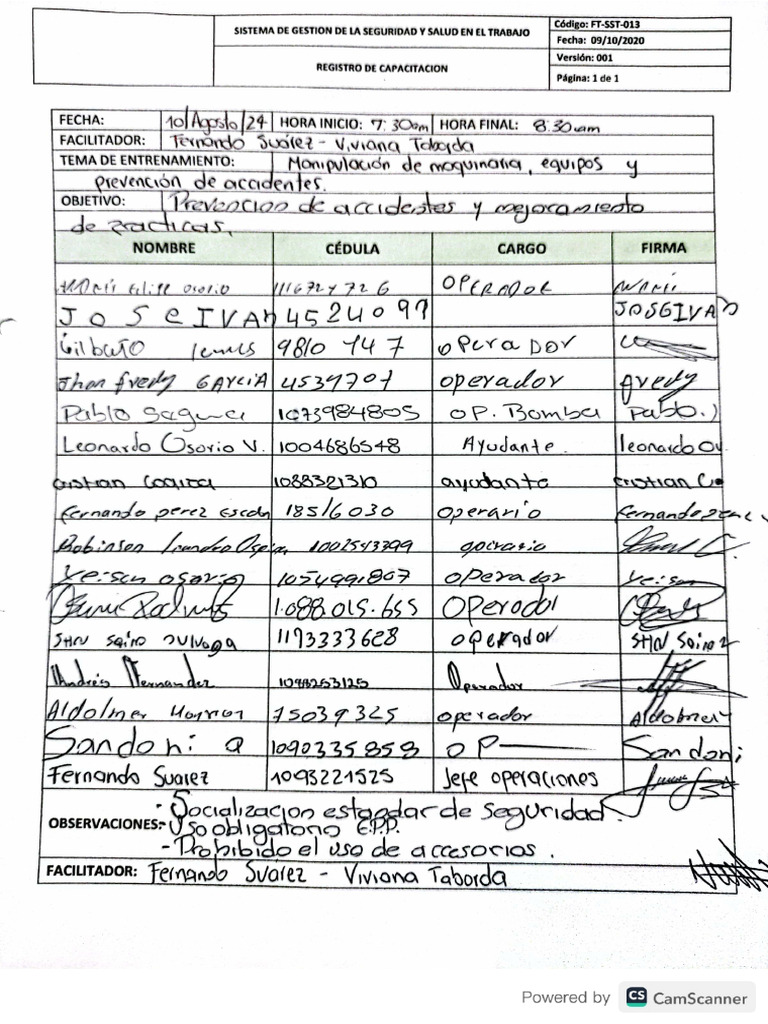 SISTEMA DE GESTION DE LA SEGURIDAD Y SALUD EN EL TRABAJO
Código: FT-SST-013
Fecha: 09/10/2020
REGISTRO DE CAPACITACION
Versión: 001
Página: 1 de 1
FECHA: 10/Agosto/24 HORA INICIO: 7:30am HORA FINAL: 8:30am
FACILITADOR: Fernando Suárez - Viviana Taborda
TEMA DE ENTRENAMIENTO: Manipulación de maquinaria, equipos y
prevención de accidentes.
OBJETIVO: Prevencion de accidentes y mejoramiento
de practicas.
NOMBRE CÉDULA CARGO FIRMA
Osorio OPERADOR
JOSE IVAN 4524097 JOSGIVAN
Gilberto 9810747 OPERADOR
Jhon fredy GARCIA 4539707 operador fredy
Pablo 1073984805 OP. Bomba Pablo
Leonardo Osorio V. 1004686548 Ayudante. leonardo OV
cristian 1088321310 ayudante cristian
fernando perez 18516030 operario fernando perez
Robinson Leandro 1002543799
Yeison osorio 1054991807 operador Yeison
1.088.015.655 OPERADOR
1193333628 operador
Andrés Hernandez 1088253125 Operador
Aldolmer 75039325 operador Aldolmer
Sandoni a 1090335858 OP Sandoni
Fernando Suarez 1093221525 Jefe operaciones
OBSERVACIONES: - Socializacion estandar de seguridad.
- Uso obligatorio E.P.P.
- Prohibido el uso de accesorios.
FACILITADOR: Fernando Suarez - Viviana Taborda
Powered by CS CamScanner